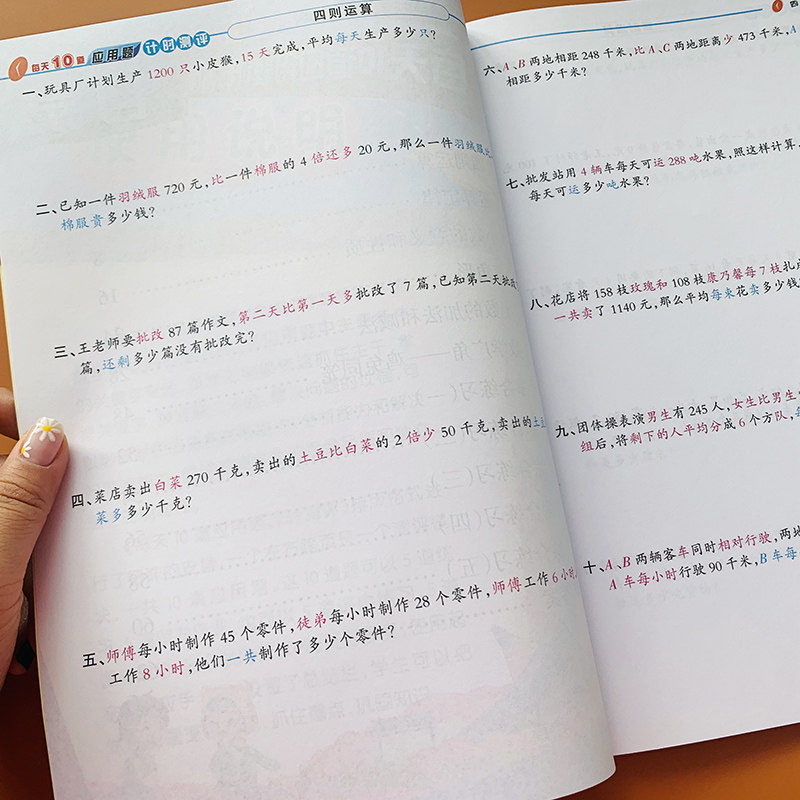 每天10道 应用题 计时测评
四则运算
一、玩具厂计划生产 1200 只小皮猴,15 天完成,平均每天生产多少只?
二、已知一件羽绒服 720 元,比一件棉服的 4 倍还多 20 元,那么一件羽绒服比
棉服贵多少钱?
三、王老师要批改 87 篇作文,第二天比第一天多批改了 7 篇,已知第二天批改
篇,还剩多少篇没有批改完?
四、菜店卖出白菜 270 千克,卖出的土豆比白菜的 2 倍少 50 千克,卖出的土豆
菜多多少千克?
五、师傅每小时制作 45 个零件,徒弟每小时制作 28 个零件,师傅工作 6 小时,
工作 8 小时,他们一共制作了多少个零件?
六、A、B 两地相距 248 千米,比 A、C 两地距离少 473 千米,A
相距多少千米?
七、批发站用 4 辆车每天可运 288 吨水果,照这样计算,
每天可运多少吨水果?
八、花店将 158 枝玫瑰和 108 枝康乃馨每 7 枝扎成
一共卖了 1140 元,那么平均每束花卖多少钱
九、团体操表演男生有 245 人,女生比男生
组后,将剩下的人平均分成 6 个方队,每
十、A、B 两辆客车同时相对行驶,两地
A 车每小时行驶 90 千米,B 车每